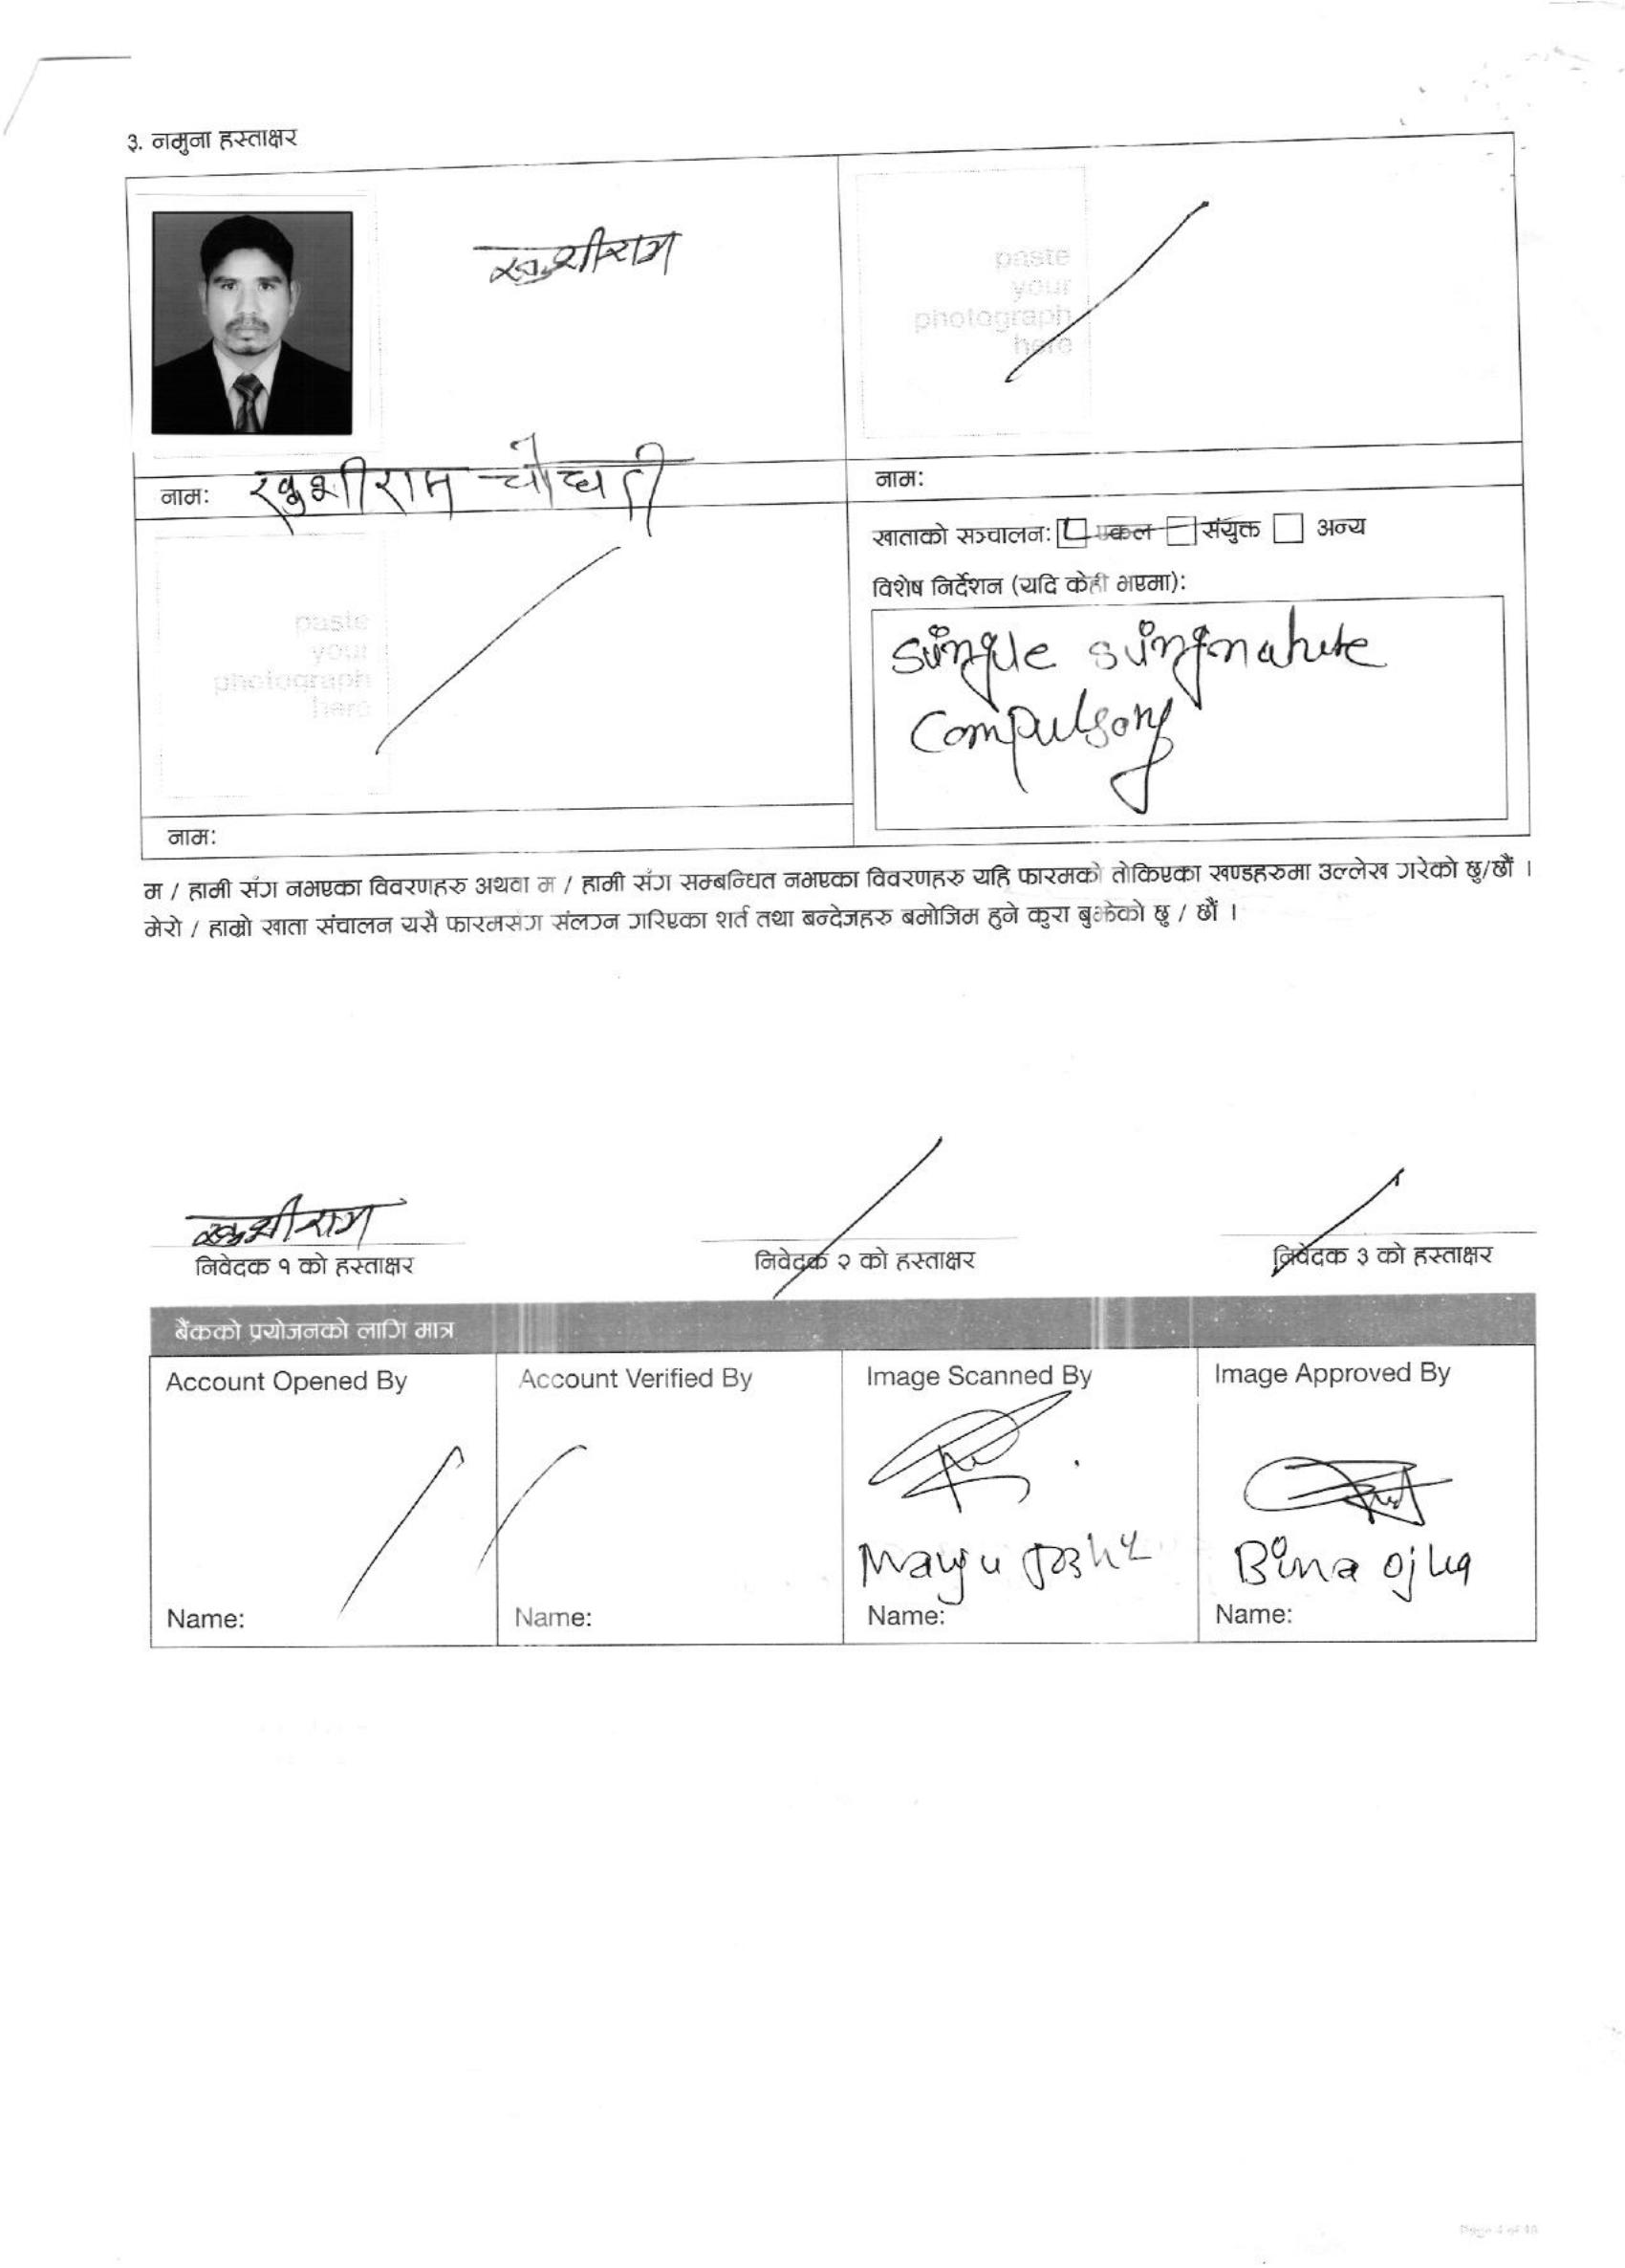 ३. नमुना हस्ताक्षर
खुशीराम
paste
your
photograph
here
नाम: खुशीराम चौधरी
नाम:
खाताको सञ्चालन: एकल संयुक्त अन्य
विशेष निर्देशन (यदि केही भएमा):
paste
your
photograph
here
single singnature
compulsory
नाम:
म / हामी सँग नभएका विवरणहरु अथवा म / हामी सँग सम्बन्धित नभएका विवरणहरु यहि फारमको तोकिएका खण्डहरुमा उल्लेख गरेको छु/छौं ।
मेरो / हाम्रो खाता संचालन यसै फारमसंग संलग्न गरिएका शर्त तथा बन्देजहरु बमोजिम हुने कुरा बुझेको छु / छौं ।
खुशीराम
निवेदक १ को हस्ताक्षर निवेदक २ को हस्ताक्षर निवेदक ३ को हस्ताक्षर
बैंकको प्रयोजनको लागि मात्र
Account Opened By Account Verified By Image Scanned By Image Approved By
Manju Joshi Bina ojha
Name: Name: Name: Name: